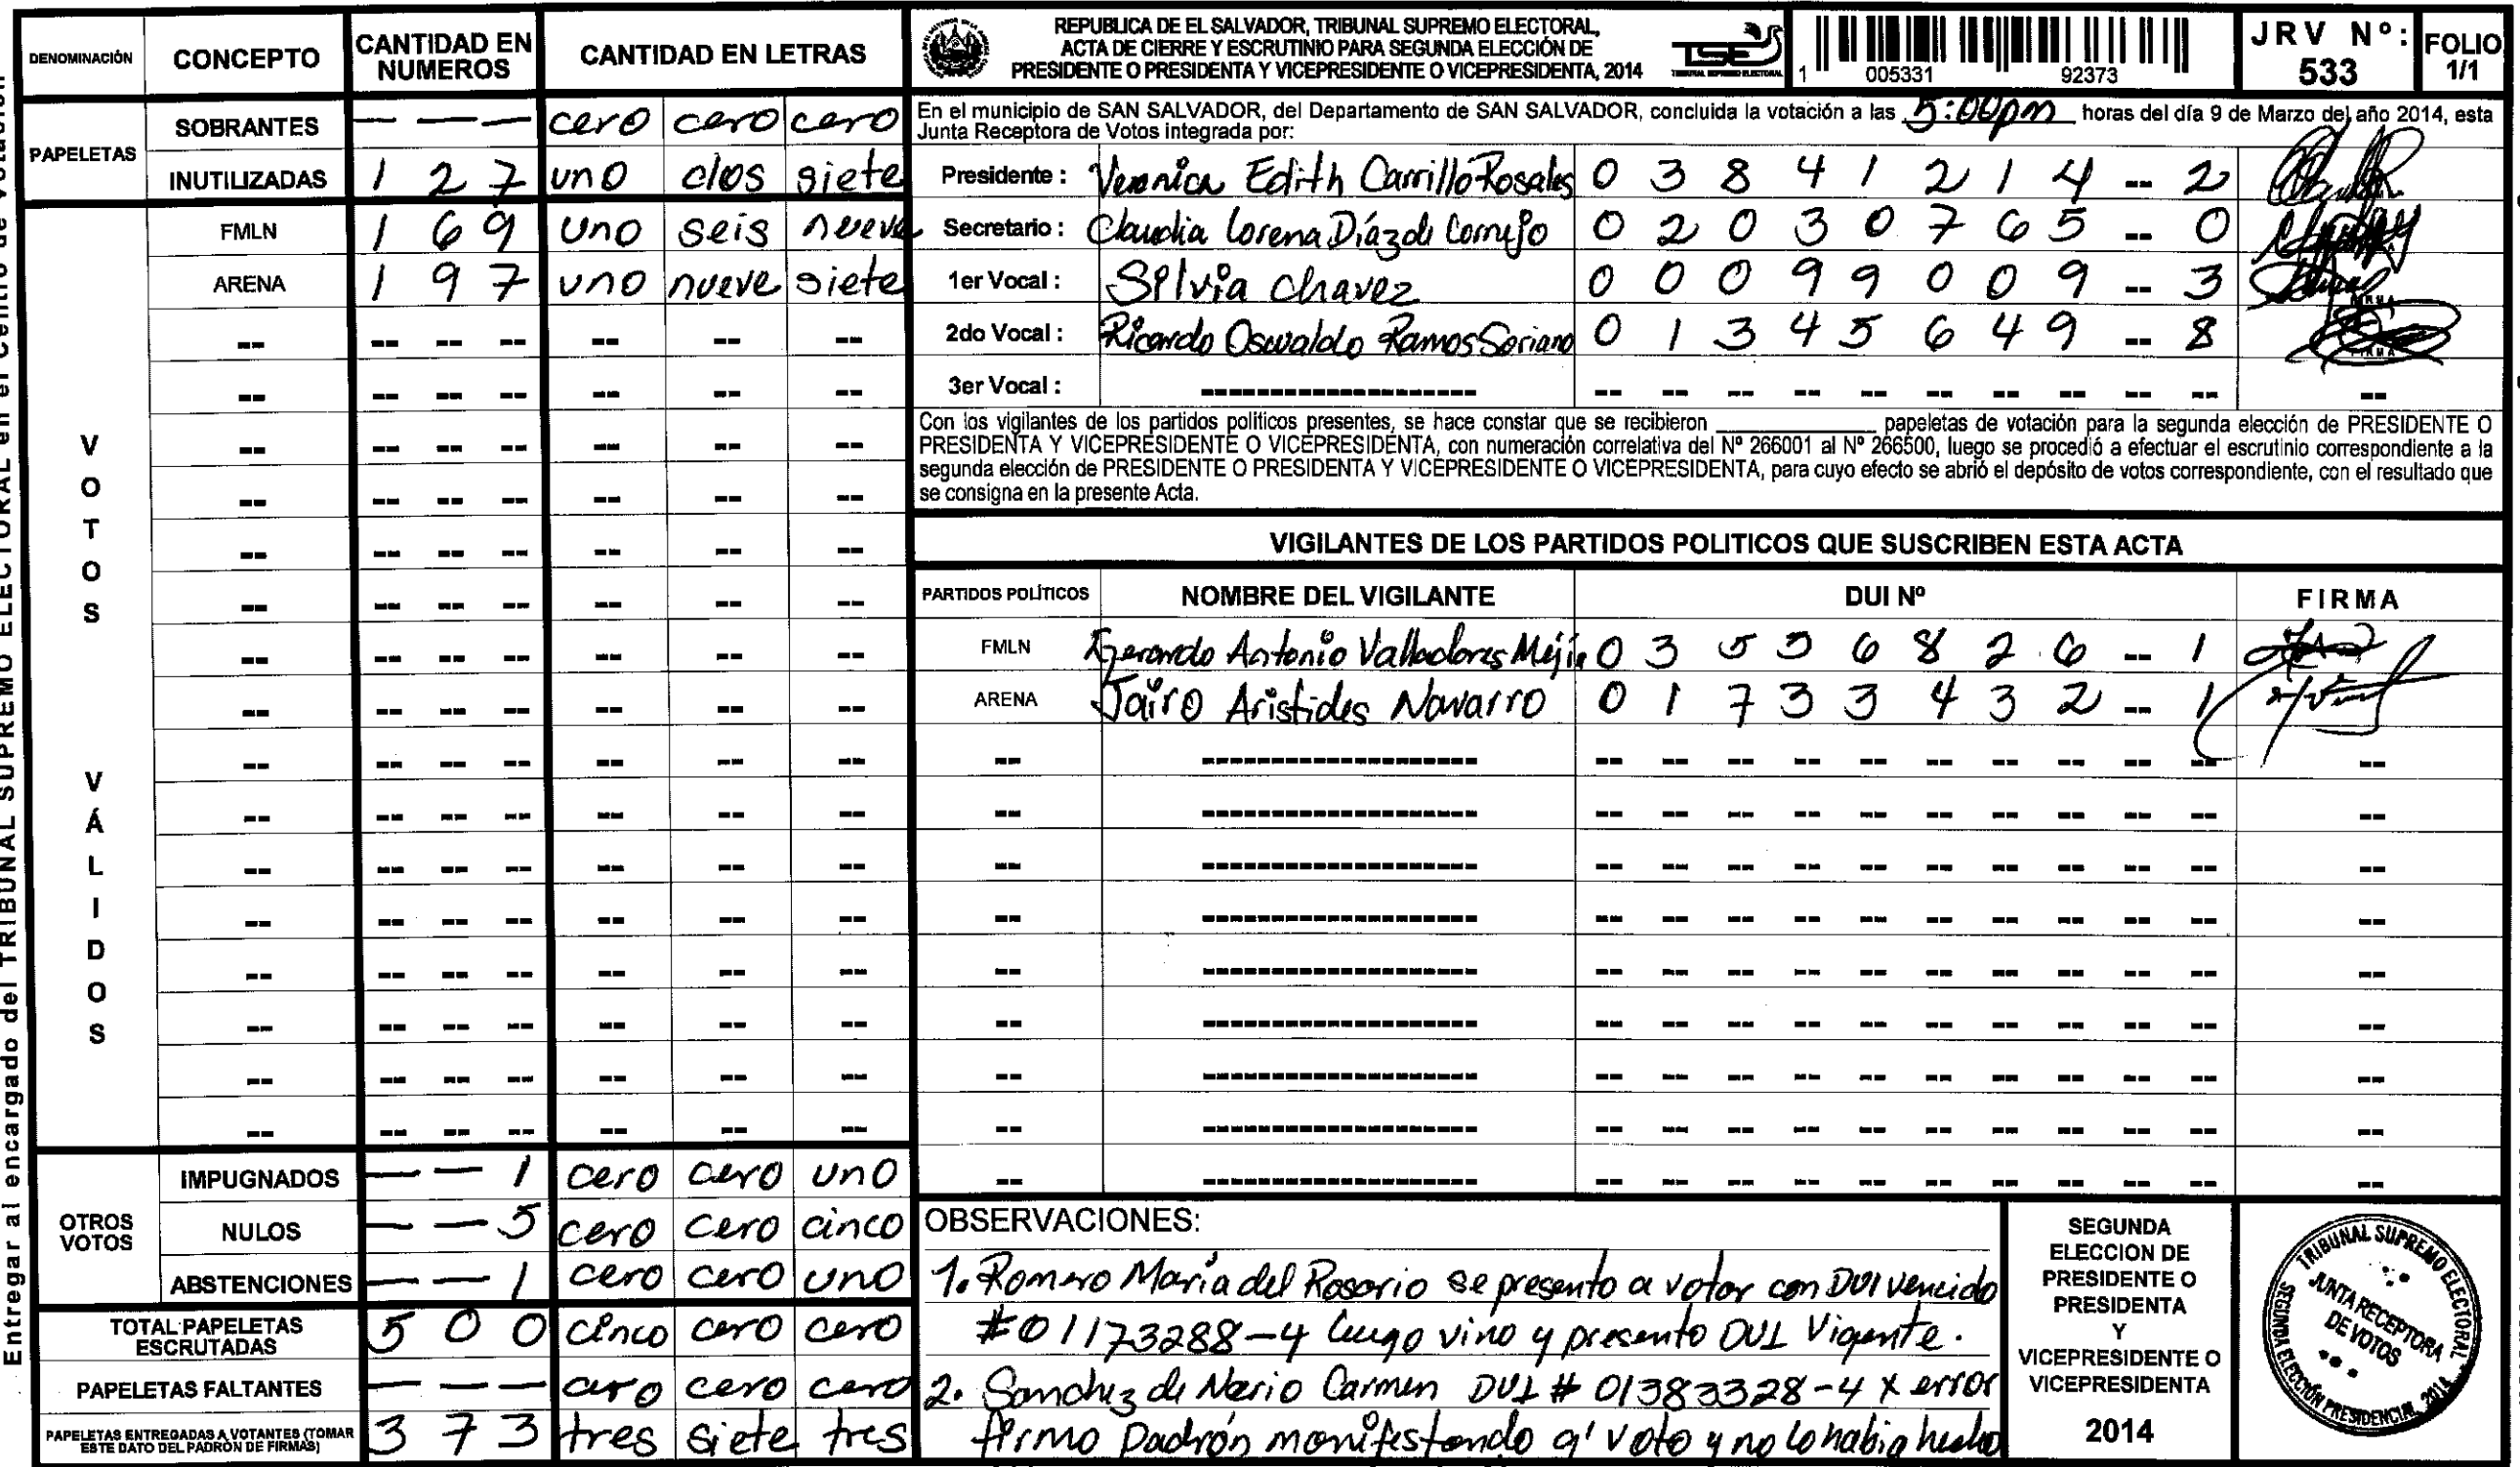 Entregar al encargado del TRIBUNAL SUPREMO ELECTORAL en el Centro de Votación
DENOMINACIÓN CONCEPTO CANTIDAD EN NUMEROS CANTIDAD EN LETRAS
PAPELETAS
SOBRANTES — — — cero cero cero
INUTILIZADAS 1 2 7 uno dos siete
VOTOS VÁLIDOS
FMLN 1 6 9 uno seis nueve
ARENA 1 9 7 uno nueve siete
OTROS VOTOS
IMPUGNADOS — — 1 cero cero uno
NULOS — — 5 cero cero cinco
ABSTENCIONES — — 1 cero cero uno
TOTAL PAPELETAS ESCRUTADAS 5 0 0 cinco cero cero
PAPELETAS FALTANTES — — — cero cero cero
PAPELETAS ENTREGADAS A VOTANTES (TOMAR ESTE DATO DEL PADRÓN DE FIRMAS) 3 7 3 tres siete tres
REPUBLICA DE EL SALVADOR, TRIBUNAL SUPREMO ELECTORAL,
ACTA DE CIERRE Y ESCRUTINIO PARA SEGUNDA ELECCIÓN DE
PRESIDENTE O PRESIDENTA Y VICEPRESIDENTE O VICEPRESIDENTA, 2014
TSE
TRIBUNAL SUPREMO ELECTORAL
1 005331 92373
JRV Nº: 533
FOLIO 1/1
En el municipio de SAN SALVADOR, del Departamento de SAN SALVADOR, concluida la votación a las 5:00pm horas del día 9 de Marzo del año 2014, esta
Junta Receptora de Votos integrada por:
Presidente : Veronica Edith Carrillo Rosales 0 3 8 4 1 2 1 4 -- 2
Secretario : Claudia Lorena Díaz de Cornejo 0 2 0 3 0 7 6 5 -- 0
1er Vocal : Silvia Chavez 0 0 0 9 9 0 0 9 -- 3
2do Vocal : Ricardo Oswaldo Ramos Soriano 0 1 3 4 5 6 4 9 -- 8
3er Vocal :
Con los vigilantes de los partidos políticos presentes, se hace constar que se recibieron ____ papeletas de votación para la segunda elección de PRESIDENTE O
PRESIDENTA Y VICEPRESIDENTE O VICEPRESIDENTA, con numeración correlativa del Nº 266001 al Nº 266500, luego se procedió a efectuar el escrutinio correspondiente a la
segunda elección de PRESIDENTE O PRESIDENTA Y VICEPRESIDENTE O VICEPRESIDENTA, para cuyo efecto se abrió el depósito de votos correspondiente, con el resultado que
se consigna en la presente Acta.
VIGILANTES DE LOS PARTIDOS POLITICOS QUE SUSCRIBEN ESTA ACTA
PARTIDOS POLÍTICOS NOMBRE DEL VIGILANTE DUI Nº FIRMA
FMLN Gerardo Antonio Valladares Mejía 0 3 5 5 6 8 2 6 -- 1
ARENA Jairo Aristides Navarro 0 1 7 3 3 4 3 2 -- 1
OBSERVACIONES:
1. Romero María del Rosario se presento a votar con DUI vencido
#01173288-4 luego vino y presento DUI Vigente.
2. Sanchez de Nerio Carmen DUI # 01383328-4 x error
firmo Padrón manifestando q' voto y no lo habia hecho
SEGUNDA
ELECCION DE
PRESIDENTE O
PRESIDENTA
Y
VICEPRESIDENTE O
VICEPRESIDENTA
2014
TRIBUNAL SUPREMO ELECTORAL
JUNTA RECEPTORA
DE VOTOS
SEGUNDA ELECCIÓN PRESIDENCIAL 2014